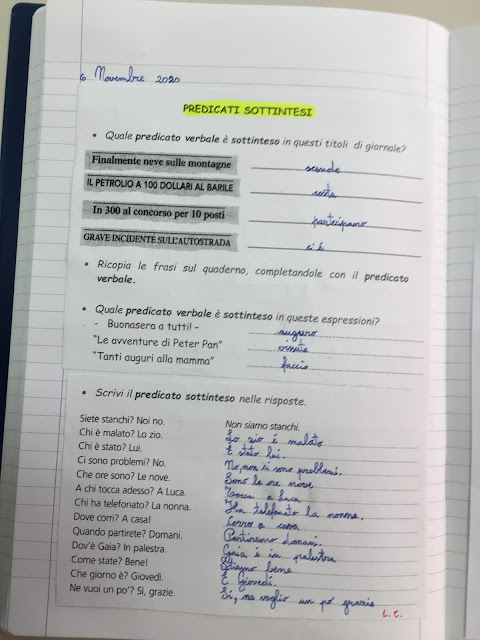 6 Novembre 2020
PREDICATI SOTTINTESI
• Quale predicato verbale è sottinteso in questi titoli di giornale?
Finalmente neve sulle montagne scende
IL PETROLIO A 100 DOLLARI AL BARILE costa
In 300 al concorso per 10 posti partecipano
GRAVE INCIDENTE SULL'AUTOSTRADA c'è
• Ricopia le frasi sul quaderno, completandole con il predicato
verbale.
• Quale predicato verbale è sottinteso in queste espressioni?
- Buonasera a tutti! - auguro
"Le avventure di Peter Pan"
"Tanti auguri alla mamma" faccio
• Scrivi il predicato sottinteso nelle risposte.
Siete stanchi? Noi no. Non siamo stanchi.
Chi è malato? Lo zio. Lo zio è malato
Chi è stato? Lui. È stato lui.
Ci sono problemi? No. No, non ci sono problemi.
Che ore sono? Le nove. Sono le ore nove
A chi tocca adesso? A Luca. Tocca a Luca
Chi ha telefonato? La nonna. Ha telefonato la nonna.
Dove corri? A casa! Corro a casa
Quando partirete? Domani. Partiremo domani.
Dov'è Gaia? In palestra. Gaia è in palestra
Come state? Bene! Stiamo bene
Che giorno è? Giovedì. È Giovedì.
Ne vuoi un po'? Sì, grazie. Sì, ne voglio un po' grazie
L.C.